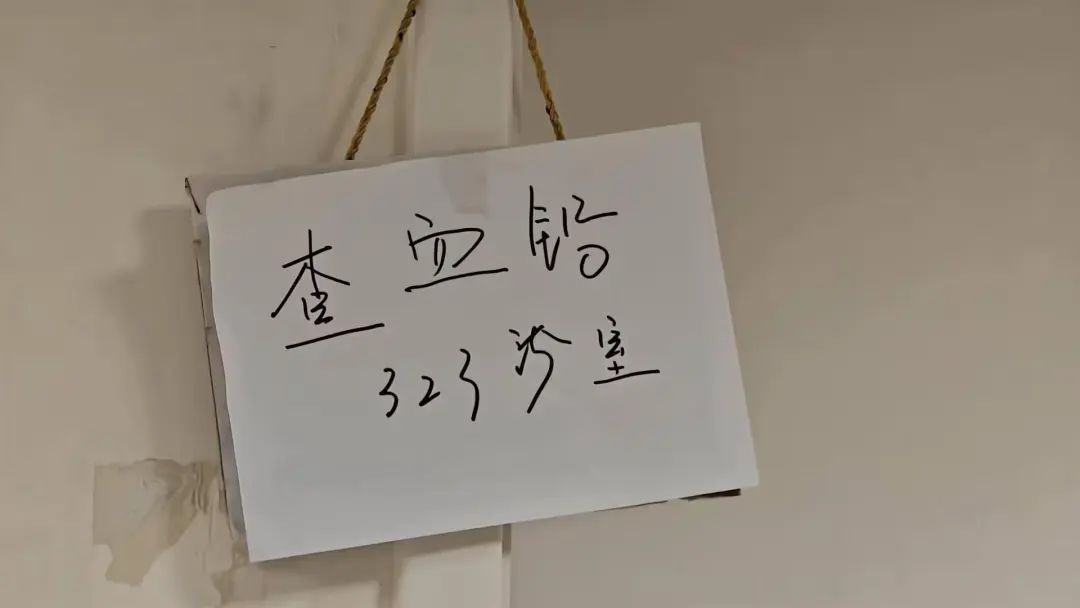 查血铅
323诊室